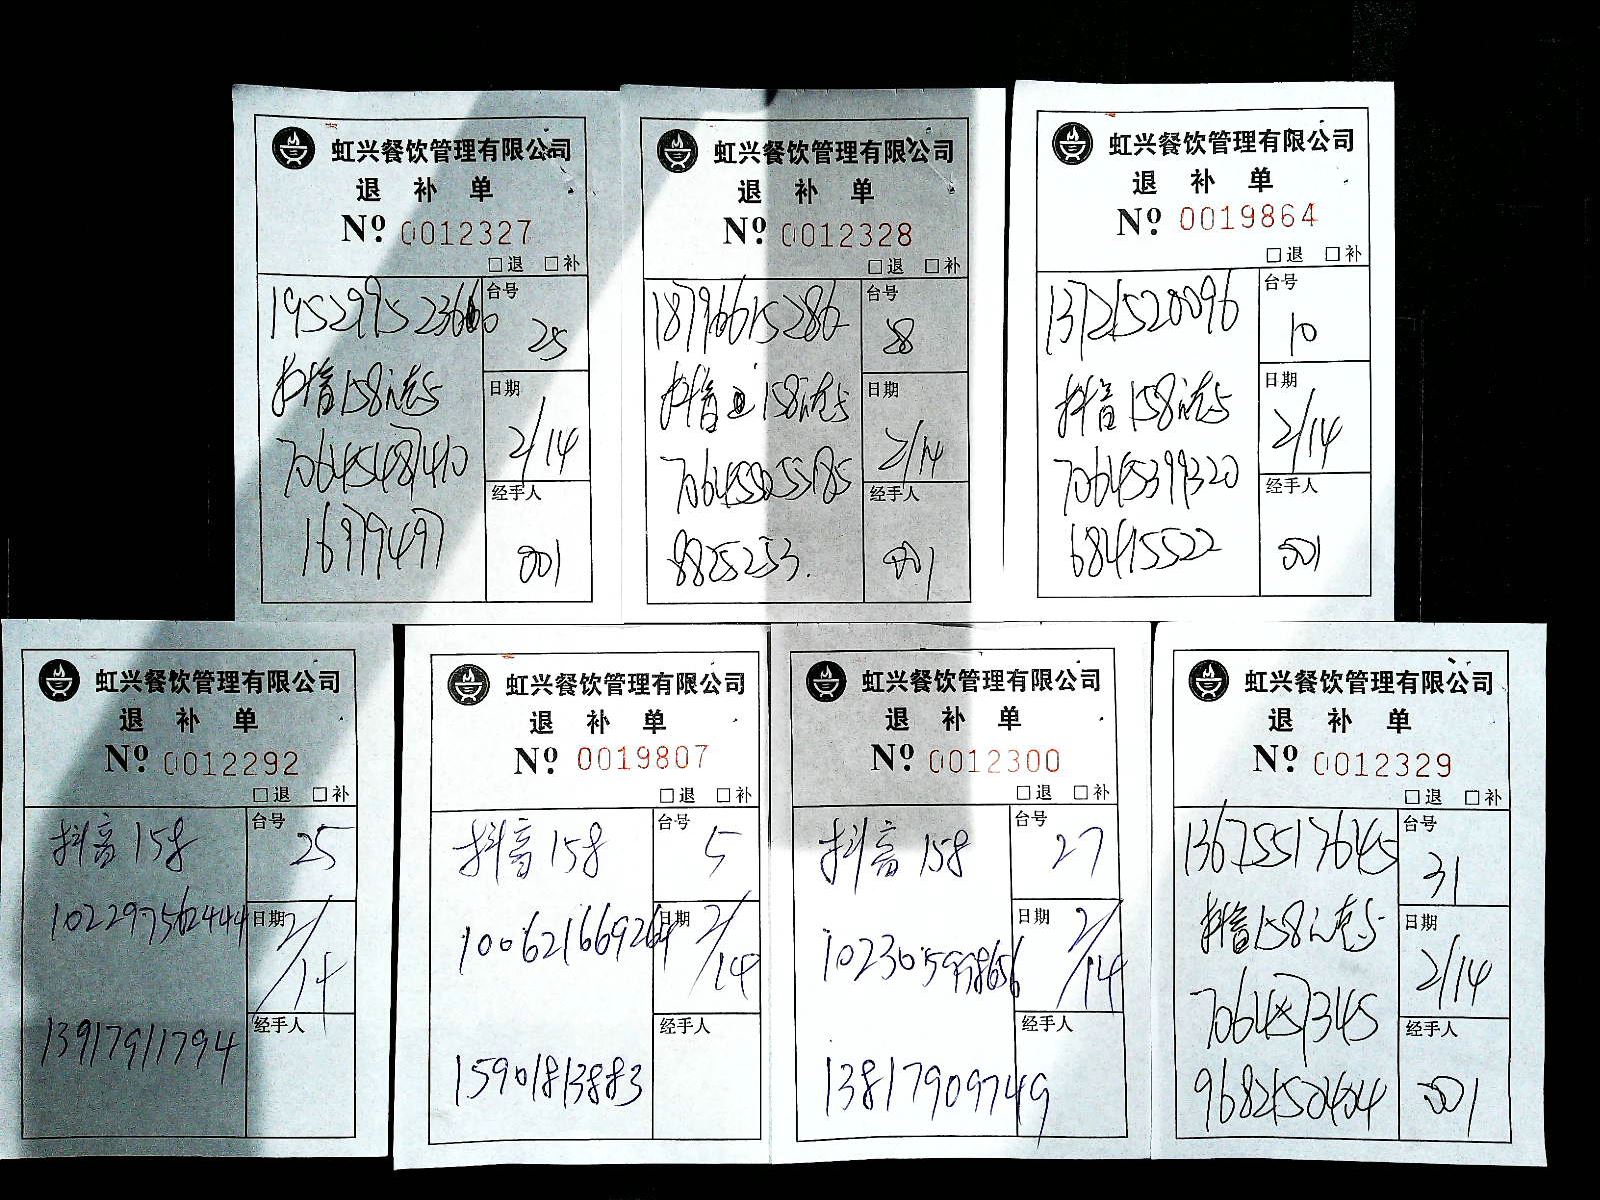 虹兴餐饮管理有限公司
退 补 单
Nº 0012327
□退 □补
台号
25
抖音158
日期
2/14
16979497
经手人
001
虹兴餐饮管理有限公司
退 补 单
Nº 0012328
□退 □补
18796615286
台号
28
抖音 158
日期
2/14
8825253.
经手人
001
虹兴餐饮管理有限公司
退 补 单
Nº 0019864
□退 □补
13721520096
台号
10
抖音158
日期
2/14
70645399320
68415522
经手人
001
虹兴餐饮管理有限公司
退 补 单
Nº 0012292
□退 □补
抖音158
台号
25
日期
2/14
13917911794
经手人
虹兴餐饮管理有限公司
退 补 单
Nº 0019807
□退 □补
抖音158
台号
5
日期
2/14
15901813883
经手人
虹兴餐饮管理有限公司
退 补 单
Nº 0012300
□退 □补
抖音158
台号
27
日期
2/14
13817909749
经手人
虹兴餐饮管理有限公司
退 补 单
Nº 0012329
□退 □补
13675517645
台号
31
抖音158
日期
2/14
经手人
001